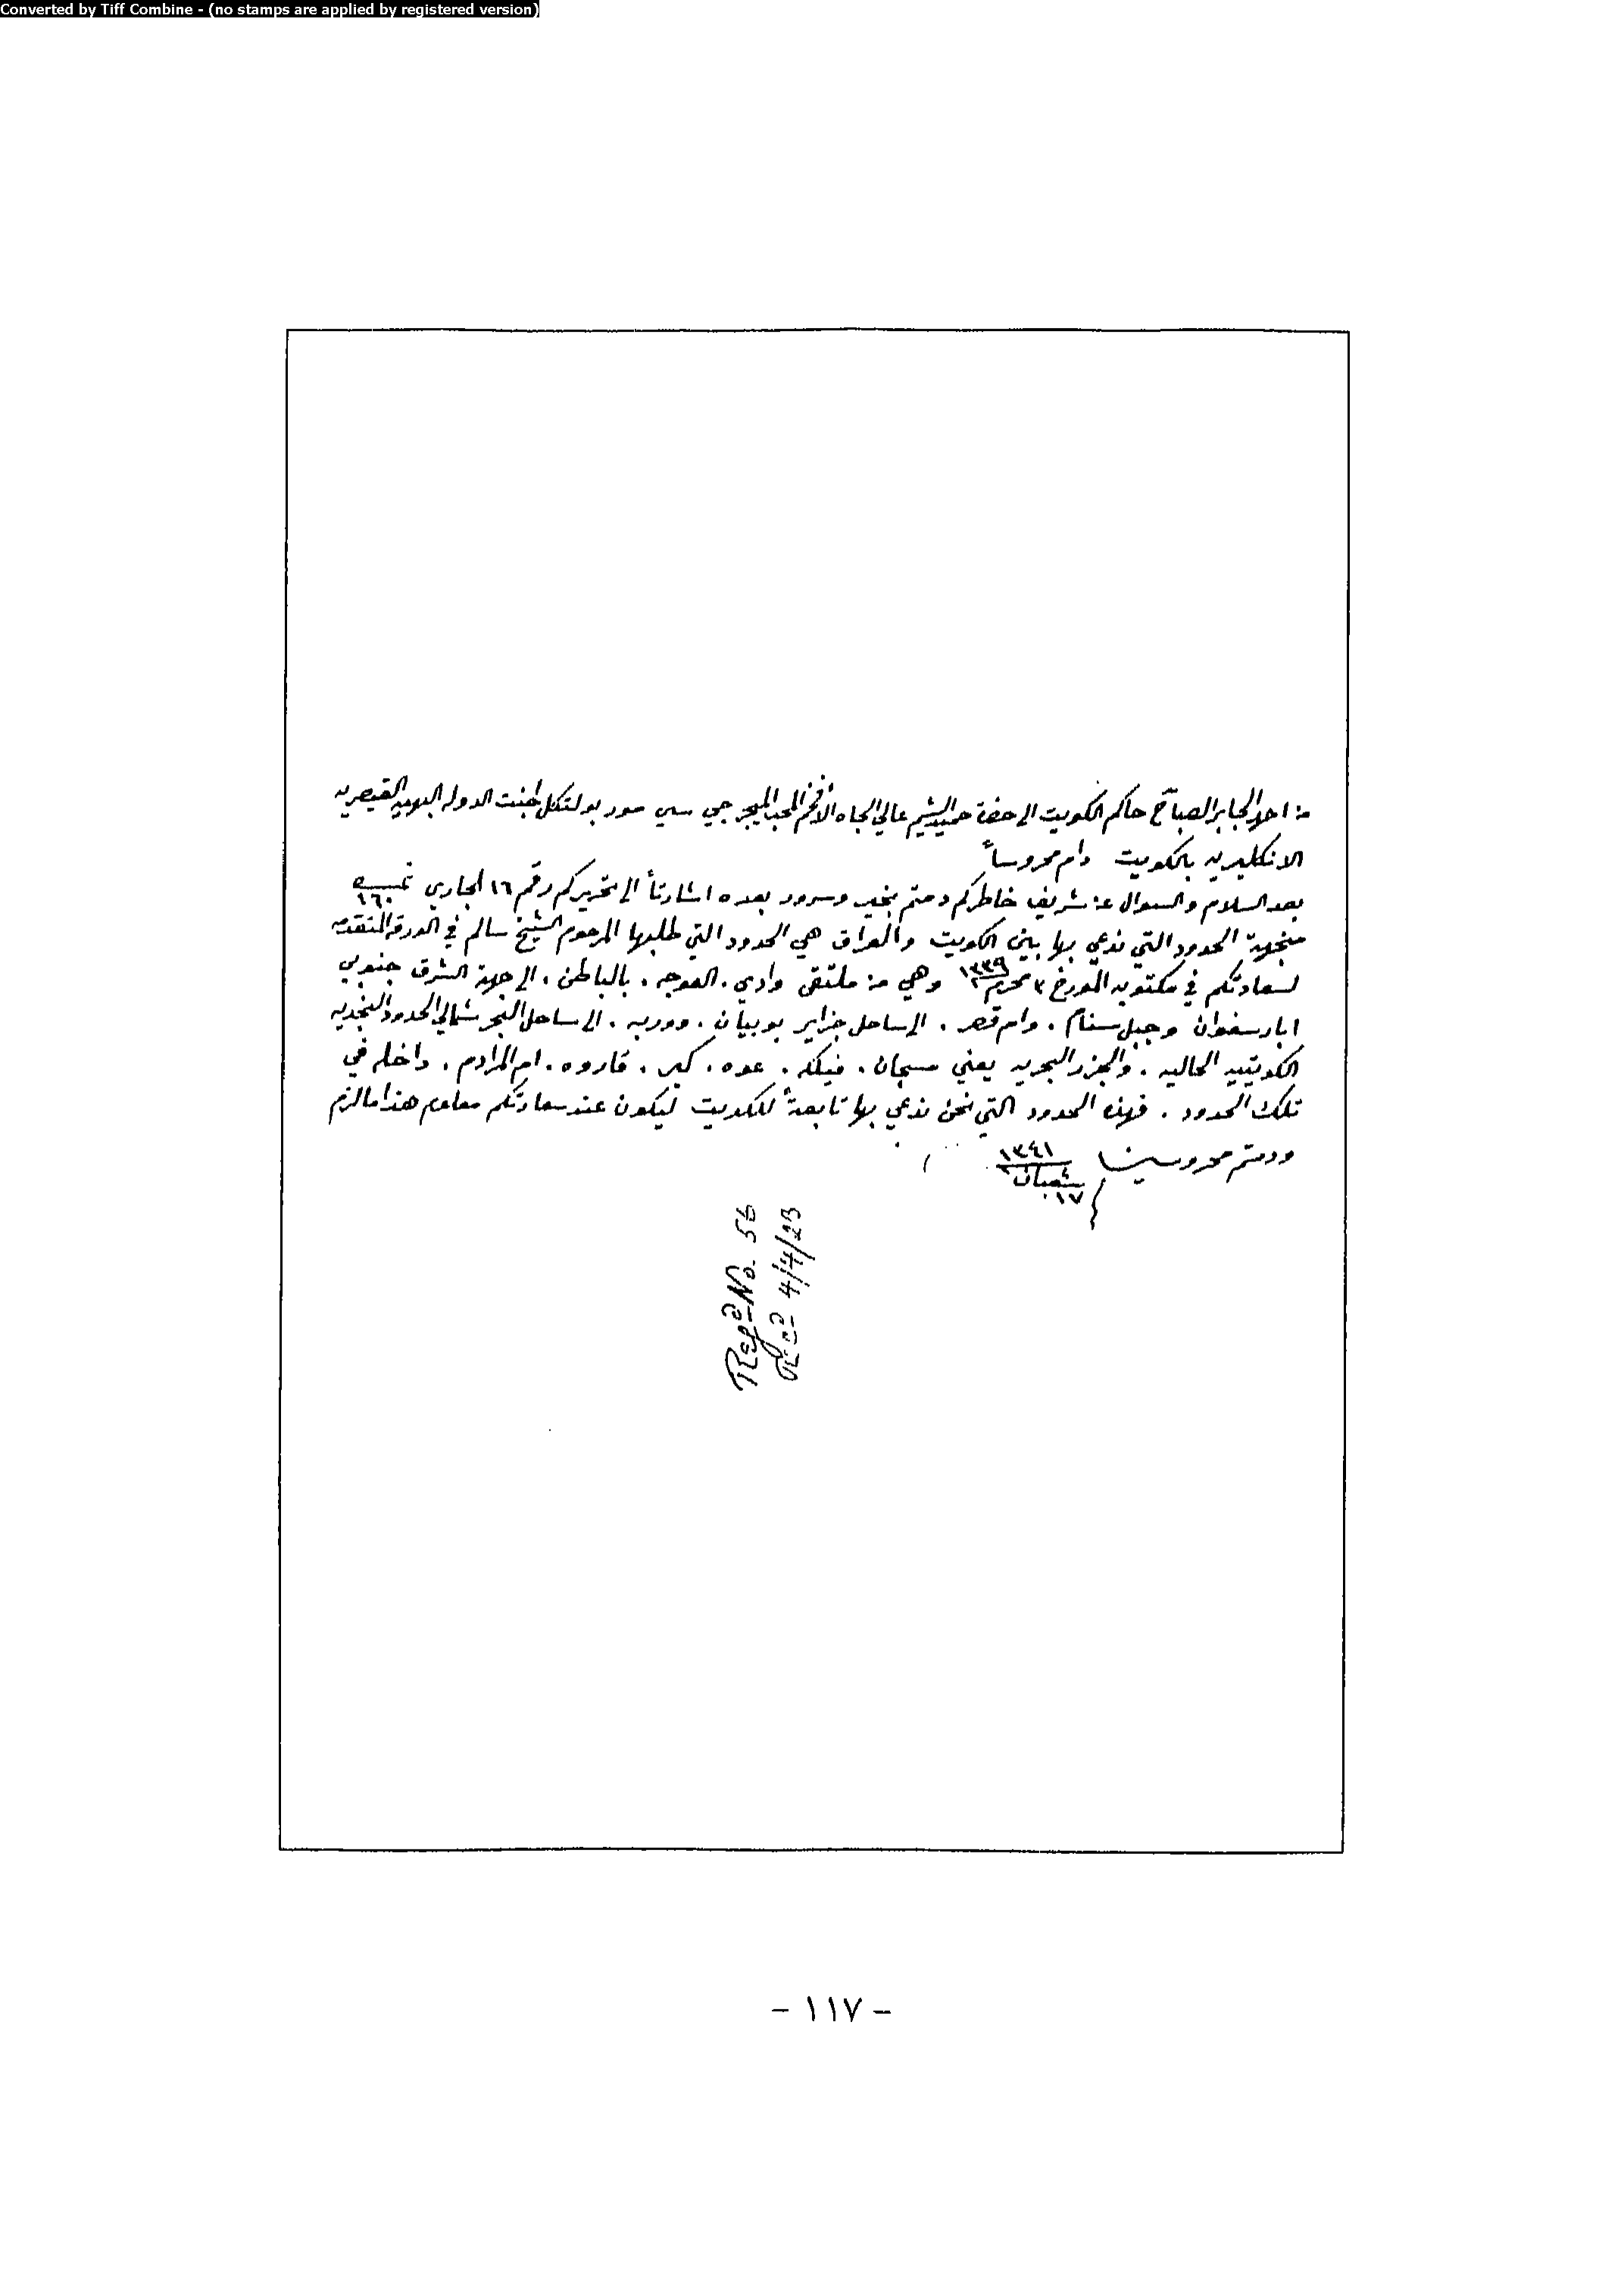 Converted by Tiff Combine - (no stamps are applied by registered version)
من احمد الجابر الصباح حاكم الكويت الى حضرة حميد الشيم عالي الجاه الأفخم المحب الميجر جي سي مور بولتكل اجنت الدوله البهيه القيصريه
الانكليزيه بالكويت دام محروساً
بعد السلام والسوال عن شريف خاطركم دمتم بخير وسرور بعده اشارتاً الى تحريركم رقم ١٦ الجاري نمبر ١٦٠
منجهة الحدود التي ندعي بها بين الكويت والعراق هي الحدود التي طلبها المرحوم الشيخ سالم في الورقة المتقدمه
لسعادتكم في مكتوبه المورخ محرم ١٣٣٩ وهي من ملتقى وادي . العوجه . بالباطن . الى جهة الشرق جنوبي
ابار سفوان وجبل سنام . وام قصر . الى ساحل جزاير بوبيان . ووربه . الى ساحل البحر شمالي الحدود النجديه
الكويتيه الحاليه . والجزر البحريه يعني مسجان . فيلكه . عوه . كبر . قاروه . ام المرادم . داخله في
تلك الحدود . فهذه الحدود التي نحن ندعي بها تابعةً للكويت ليكون عند سعادتكم معلوم هذا مالزم
ودمتم محروسين ١٧ شعبان ١٣٤١
Regd No. 56
Recd 4/4/23
- ١١٧ -